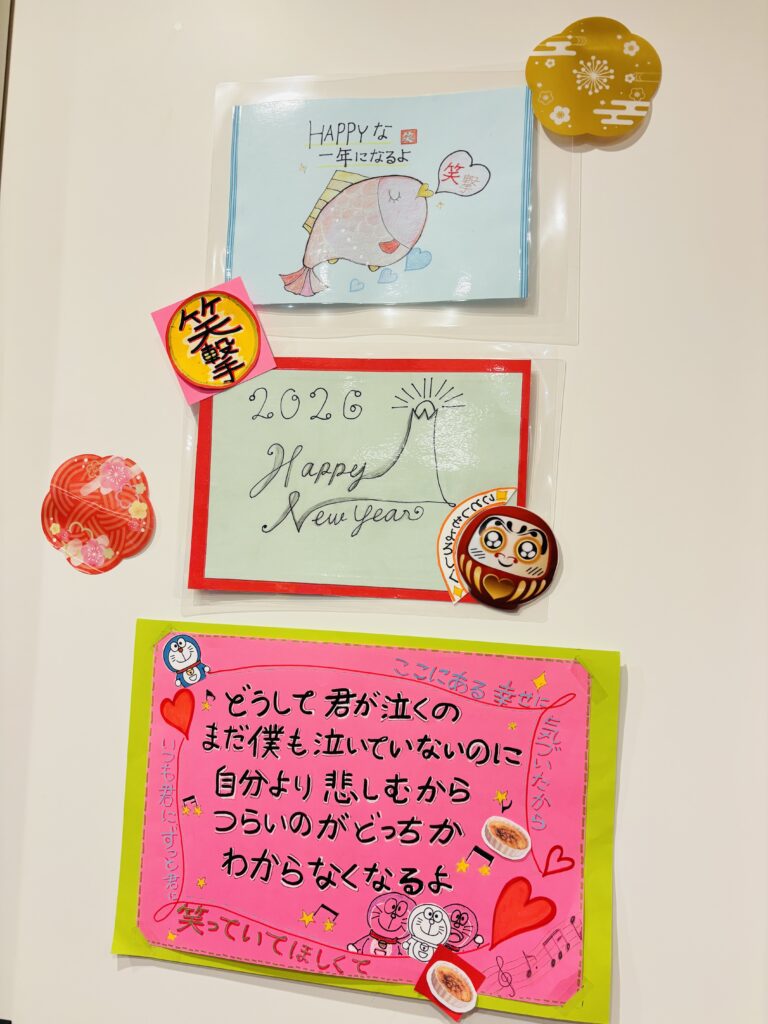 HAPPYな 笑
一年になるよ
笑撃
笑撃
2026
Happy
New Year
ことしもよろしく
ここにある 幸せに
気づいたから
どうして君が泣くの
まだ僕も泣いていないのに
自分より悲しむから
つらいのがどっちか
わからなくなるよ
いつも君に ずっと君に
笑っていてほしくて